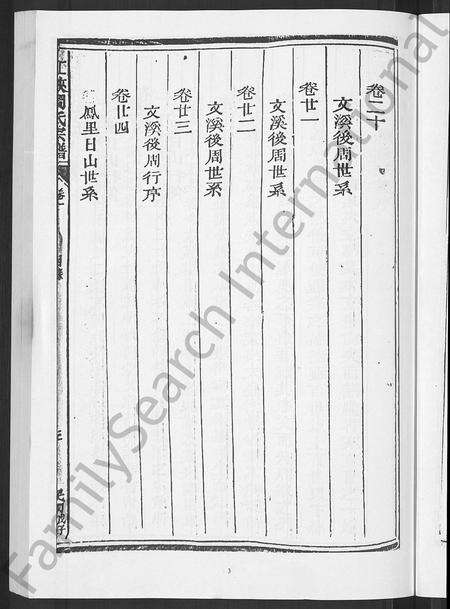 卷二十
文溪後周世系
卷廿一
文溪後周世系
卷廿二
文溪後周世系
卷廿三
文溪後周行序
卷廿四
鳳里日山世系
周氏宗譜
卷一
目錄
FamilySearch International